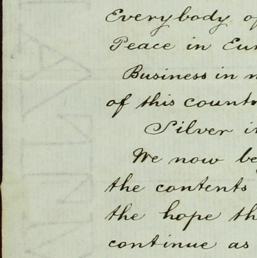 Everybody
Peace in
Business in
of this
Silver
We now
the contents
the hope
continue as